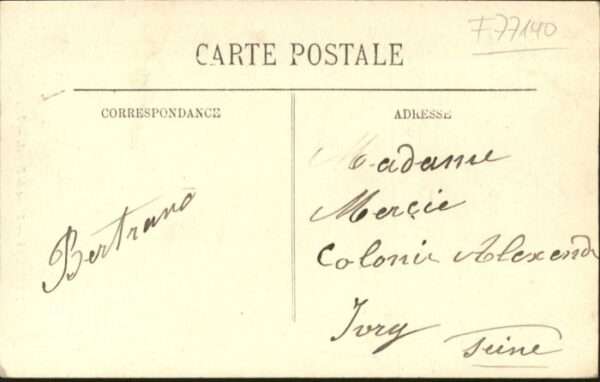 F77140
CARTE POSTALE
CORRESPONDANCE
ADRESSE
Bertrand
Madame
Merçie
Colonie Alexend
Ivry
Seine